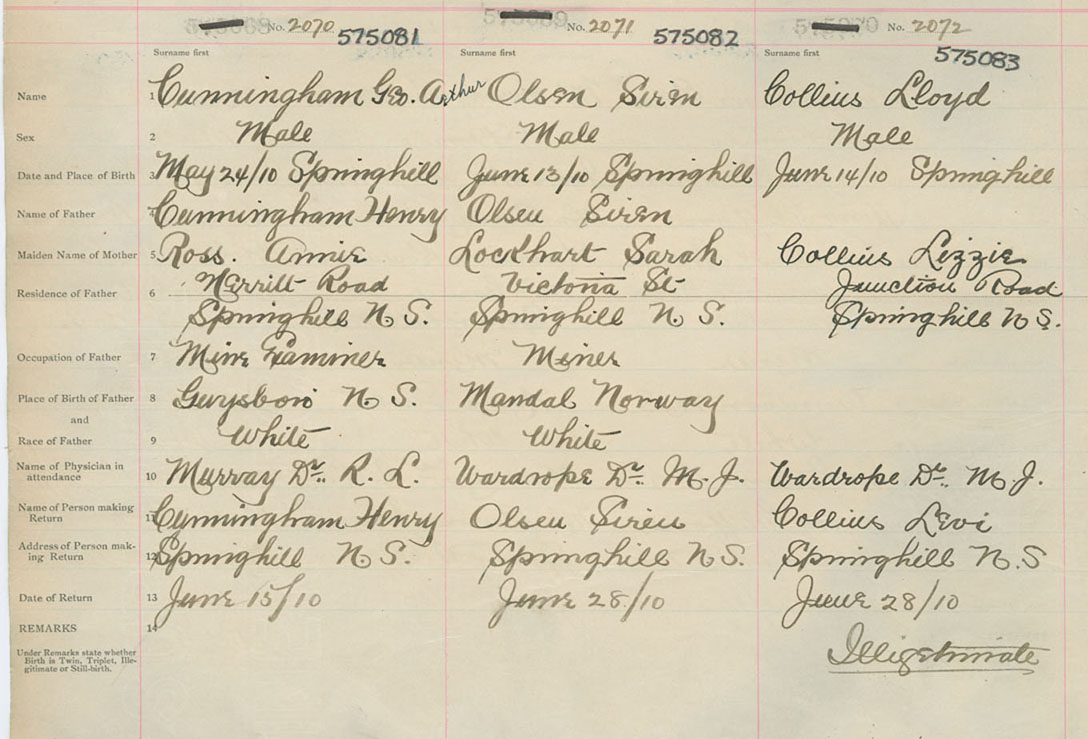 No. 2070 575081 No. 2071 575082 No. 2072 575083
Surname first Surname first Surname first
Name 1 Cunningham Geo. Arthur Olsen Siren Collins Lloyd
Sex 2 Male Male Male
Date and Place of Birth 3 May 24/10 Springhill June 13/10 Springhill June 14/10 Springhill
Name of Father 4 Cunningham Henry Olsen Siren
Maiden Name of Mother 5 Ross. Annie Lockhart Sarah Collins Lizzie
Residence of Father 6 Merritt Road Victoria St Junction Road
Springhill N. S. Springhill N. S. Springhill N S.
Occupation of Father 7 Mine Examiner Miner
Place of Birth of Father 8 Guysboro N. S. Mandal Norway
and
Race of Father 9 White White
Name of Physician in attendance 10 Murray Dr. R. L. Wardrope Dr. M. J. Wardrope Dr. M. J.
Name of Person making Return 11 Cunningham Henry Olsen Siren Collins Levi
Address of Person mak-ing Return 12 Springhill N. S. Springhill N. S. Springhill N. S
Date of Return 13 June 15/10 June 28/10 June 28/10
REMARKS 14
Under Remarks state whether
Birth is Twin, Triplet, Ille-
gitimate or Still-birth.
Illigetimate